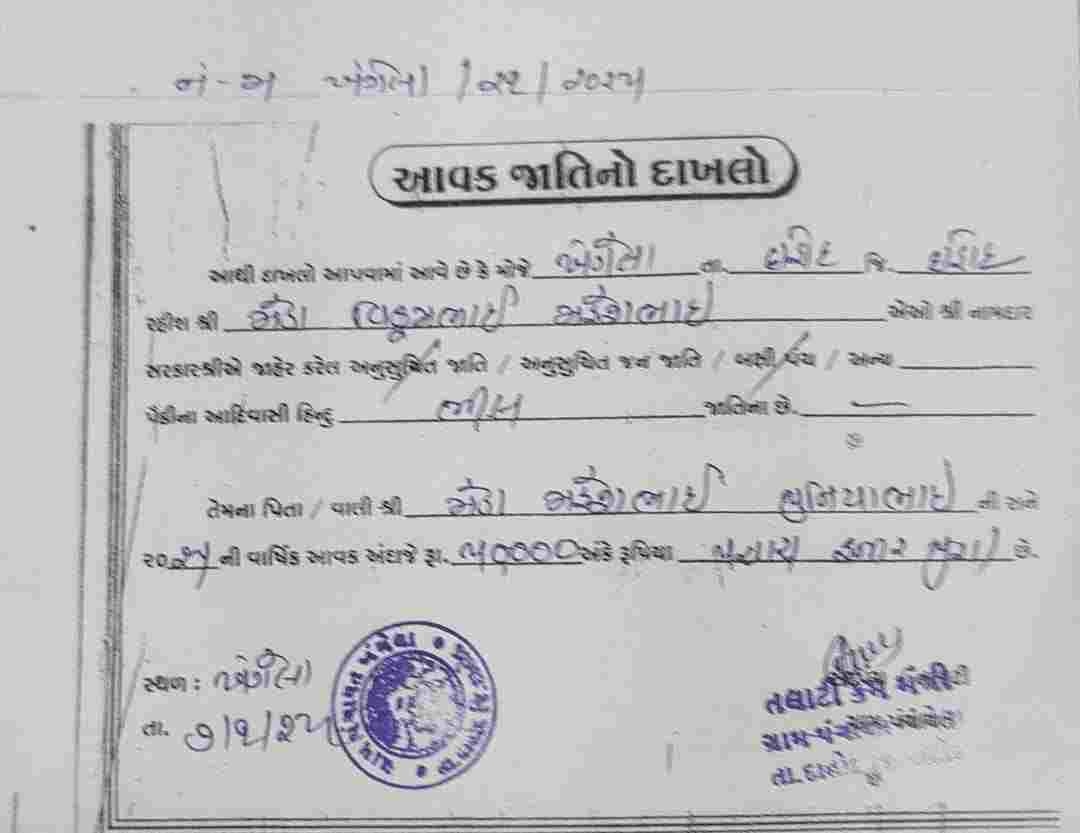 નં-અ ખંગેલા /૨૨/૨૦૨૫
આવક જાતિનો દાખલો
આથી દાખલો આપવામાં આવે છે કે મોજે ખંગેલા તા. દાહોદ જિ. દાહોદ
રહીશ શ્રી મેડા વિક્રમભાઈ મહેશભાઈ એઓ શ્રી નામદાર
સરકારશ્રીએ જાહેર કરેલ અનુસુચિત જાતિ / અનુસુચિત જન જાતિ / બક્ષી પંચ / અન્ય
પૈકીના આદિવાસી હિન્દુ ભીલ જાતિના છે. —
તેમના પિતા / વાલી શ્રી મેડા મહેશભાઈ ની સને
૨૦૨૫ ની વાર્ષિક આવક અંદાજે રૂા. ૫૦૦૦૦ અંકે રૂપિયા પચાસ હજાર પુરા છે.
સ્થળ : ખંગેલા
તા. ૭/૨/૨૫
ગ્રામ પંચાયત ખંગેલા
તલાટી કમ મંત્રી
ગ્રામ-પંચાયત
તા.દાહોદ